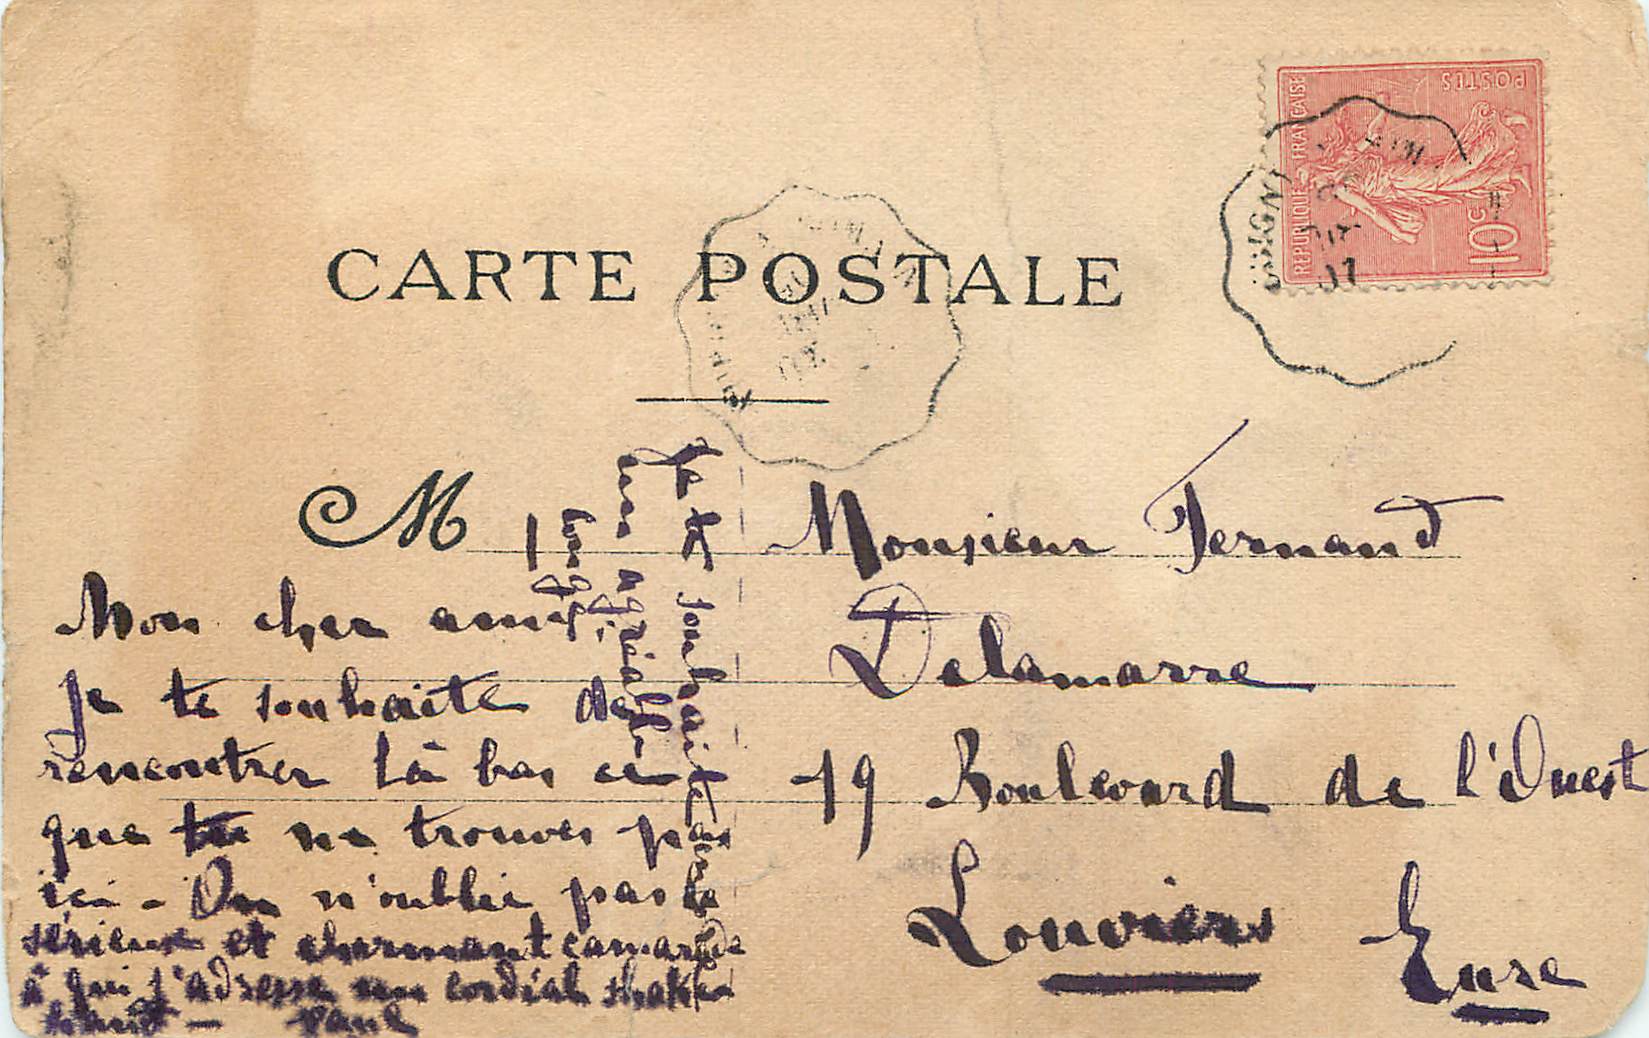 CARTE POSTALE
REPUBLIQUE FRANÇAISE
POSTES
10c
M
Monsieur Fernand
Delamarre
19 Boulevard de l'Ouest
Louviers Eure
Mon cher ami,
Je te souhaite de
rencontrer là bas ce
que tu ne trouves pas
ici - On n'oublie pas le
sérieux et charmant camarade
à qui j'adresse un cordial shake
hand - Paul
Je te souhaite
un agréable
congé